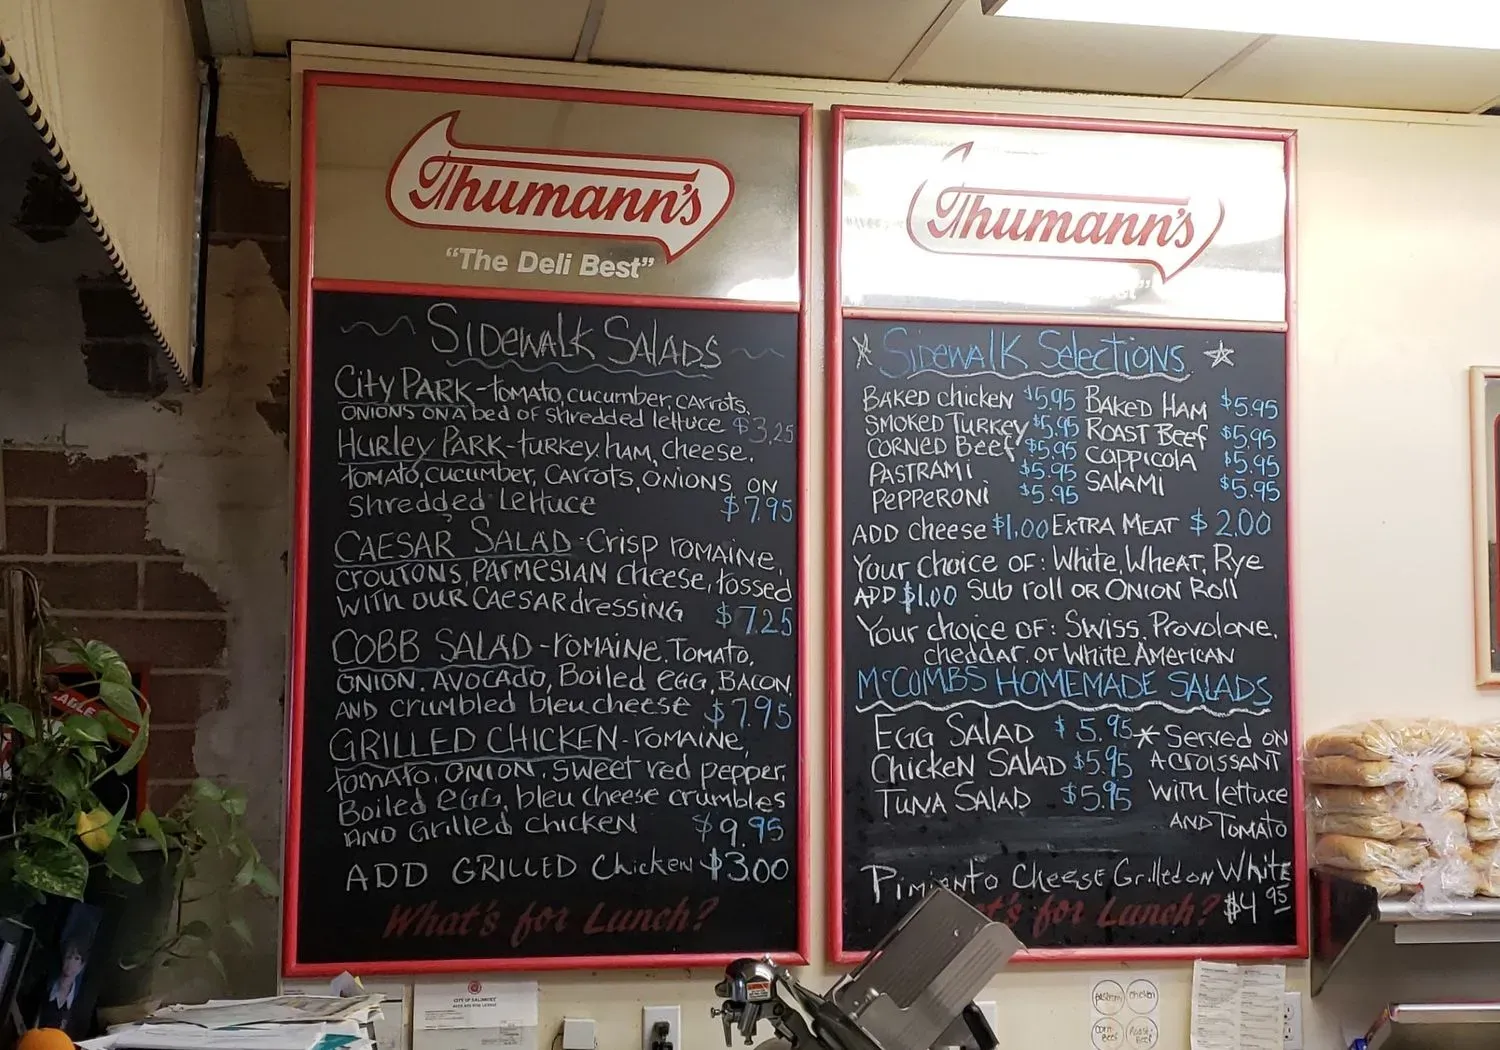 Thumann's
"The Deli Best"
Sidewalk Salads
City Park - tomato, cucumber, carrots,
onions on a bed of shredded lettuce $3.25
Hurley Park - turkey, ham, cheese,
tomato, cucumber, carrots, onions on
shredded lettuce $7.95
Caesar Salad - crisp romaine,
croutons, parmesian cheese, tossed
with our caesar dressing $7.25
Cobb Salad - romaine, tomato,
onion, avocado, boiled egg, bacon,
and crumbled bleu cheese $7.95
Grilled Chicken - romaine,
tomato, onion, sweet red pepper,
boiled egg, bleu cheese crumbles
and grilled chicken $9.95
ADD GRILLED Chicken $3.00
What's for Lunch?
Thumann's
Sidewalk Selections
Baked chicken $5.95 Baked Ham $5.95
Smoked Turkey $5.95 Roast Beef $5.95
Corned Beef $5.95 Coppicola $5.95
Pastrami $5.95 Salami $5.95
Pepperoni $5.95
ADD cheese $1.00 Extra Meat $2.00
Your choice of: White, Wheat, Rye
ADD $1.00 Sub roll or Onion Roll
Your choice of: Swiss, Provolone,
cheddar, or White American
McCombs Homemade Salads
Egg Salad $5.95 * Served on
Chicken Salad $5.95 a croissant
Tuna Salad $5.95 with lettuce
and Tomato
Pimiento Cheese Grilled on White
$4.95
for Lunch?
Pastrami
chicken
Corn Beef
Roast Beef